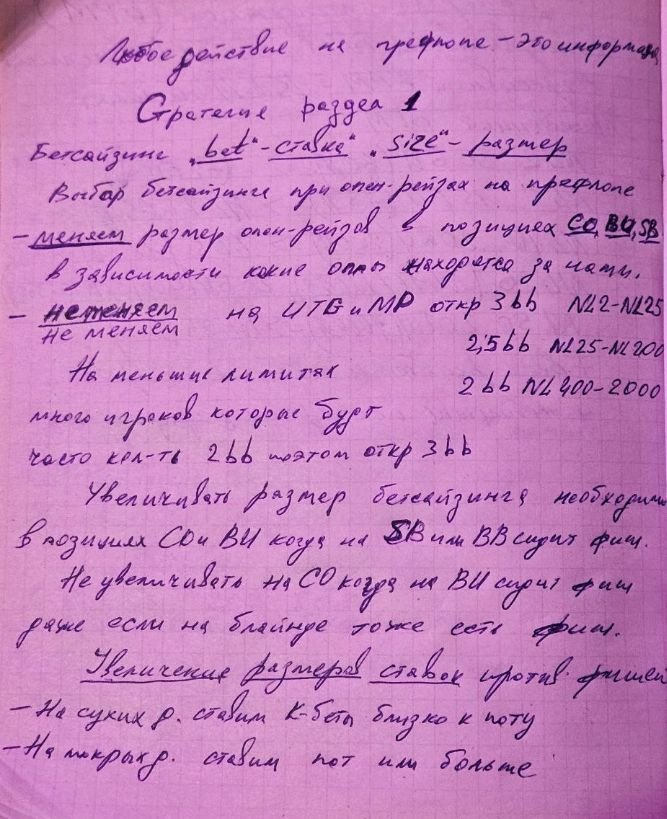 Любое действие на префлопе – это информация
Стратегия раздел 1
Бетсайзинг „bet"-ставка" „size"-размер
Выбор бетсайзинга при опен-рейзах на префлопе
– меняем размер опен-рейзов в позициях CO, BU, SB
в зависимости какие оппы находятся за нами.
– не меняем на UTG и MP откр 3bb NL2-NL25
не меняем
2,5bb NL25-NL200
На меньших лимитах
2bb NL400-2000
много игроков которые будт
часто кол-ть 2bb поэтом откр 3bb
Увеличивать размер бетсайзинга необходимо
в позициях CO и BU когда на SB или BB сидит фиш.
Не увеличивать на CO когда на BU сидит фиш
даже если на блайнде тоже есть фиш.
Увеличение размеров ставок против фишей
– На сухих д. ставим К-беты близко к поту
– На мокрых д. ставим пот или больше